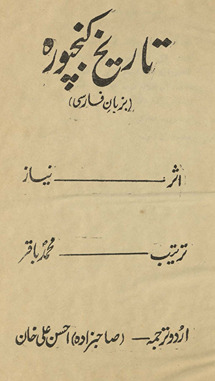 تاریخ کنجپورہ
(بزبانِ فارسی)
اثر ــــــــــ نیاز
ترتیب ــــــــــ محمد باقر
اردو ترجمہ ــ (صاحبزادہ) احسن علی خان